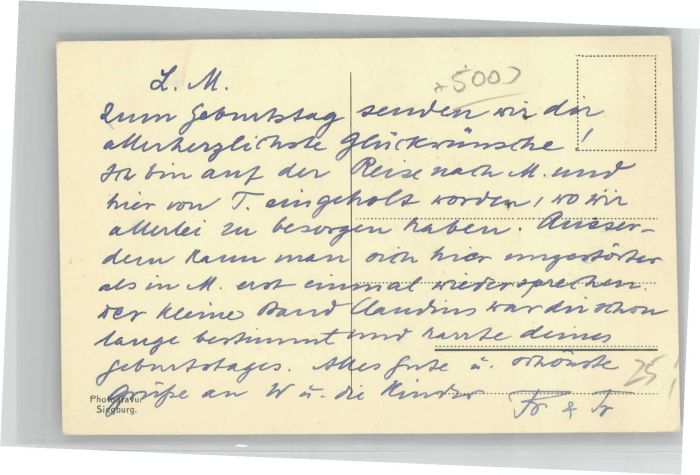 L. M.
+5000
Zum Geburtstag senden wir dir
allerherzlichste Glückwünsche!
Ich bin auf der Reise nach M. und
hier von T. eingeholt worden, wo wir
allerlei zu besorgen haben. Ausser-
dem kann man sich hier ungestörter
als in M. erst einmal wiedersprechen.
Der kleine Band Claudius war dir schon
lange bestimmt und harrte deines
Geburtstages. Alles Gute u. schönste
Grüße an W u. die Kinder
Fr & Tr
25
Photogravur
Siegburg.